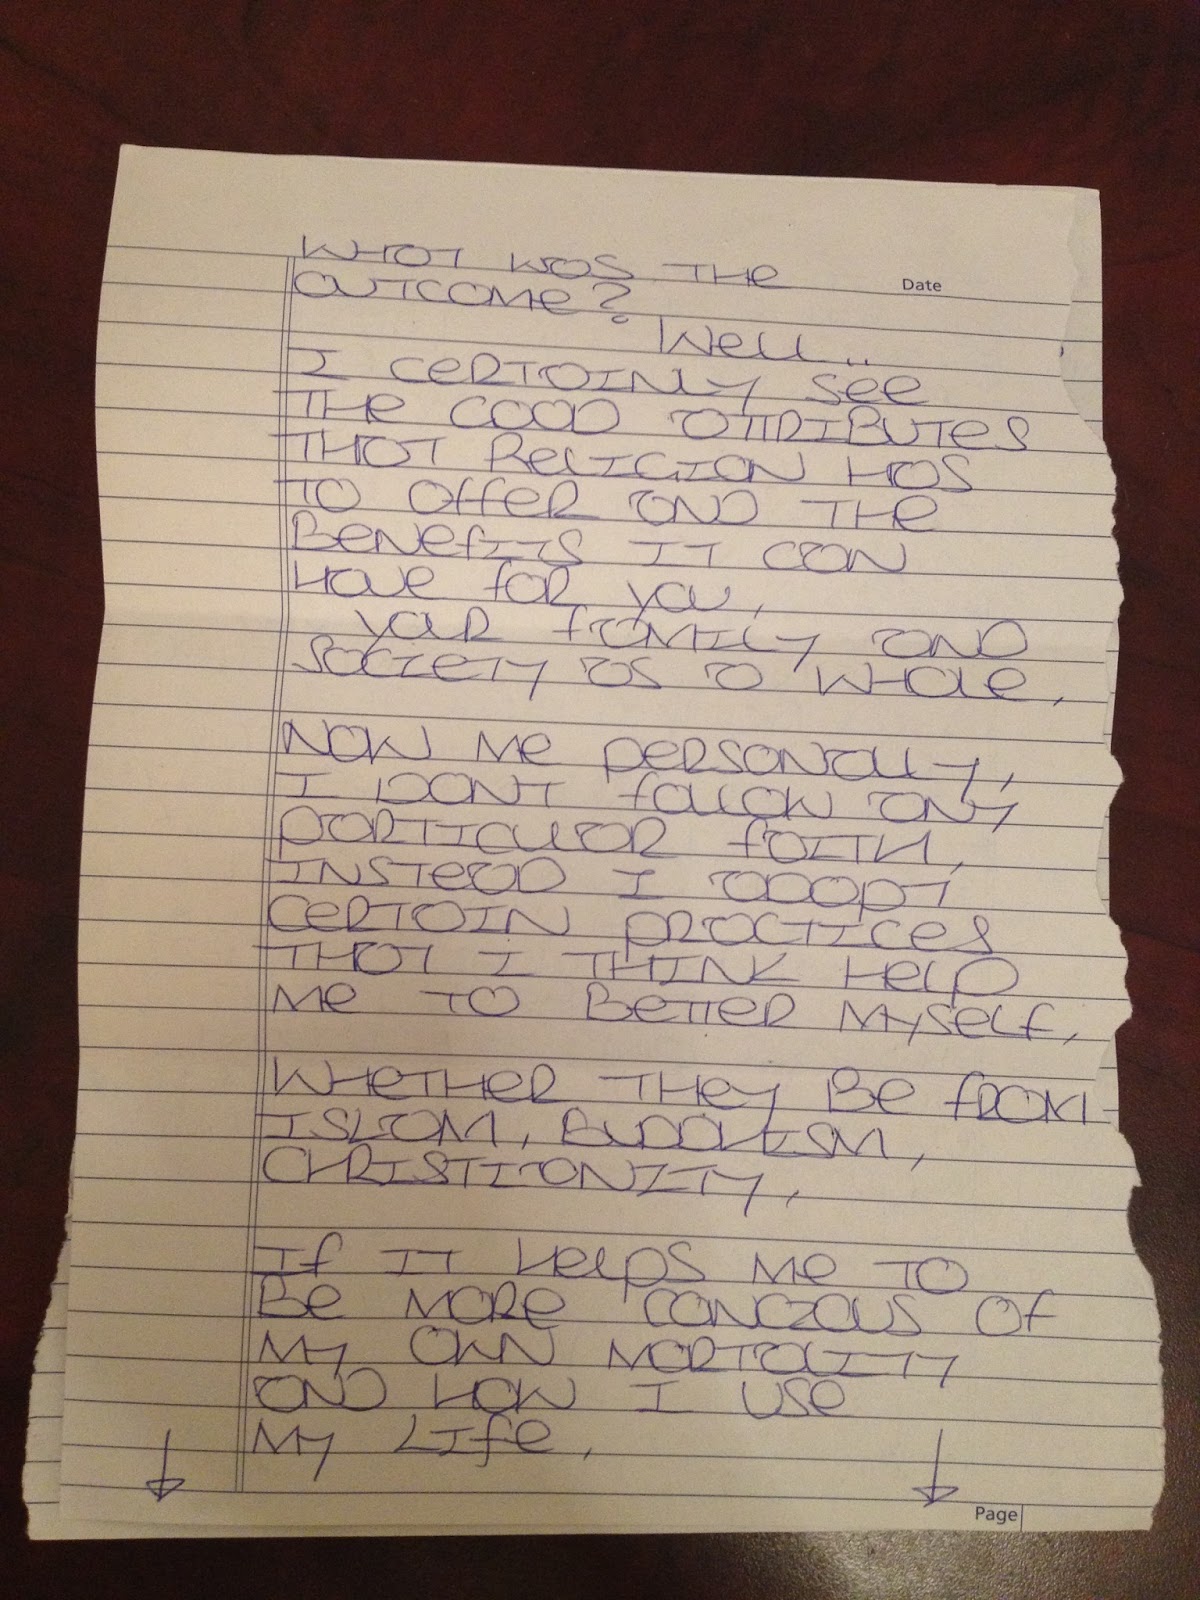 WHAT WAS THE
OUTCOME?
Date
Well..
I CeRTAINLY See
THe GOOD ATTRIBUTeS
THAT ReLIGION HAS
TO OffeR AND THe
BeNefITS IT CAN
HAVe foR YOU,
YOUR fAMILY AND
SOCIeTY AS A WHOLe,
NOW Me PeRSONALLY,
I DONT foLLOW ANY
PARTICULAR fAITH,
INSTeAD I ADOPT
CeRTAIN PRACTICeS
THAT I THINK HeLP
Me TO BeTTeR MYSeLf,
WHeTHeR THeY Be fROM
ISLAM, BUDDHISM,
CHRISTIANITY,
If IT HeLPS Me TO
Be MORe CONCIOUS Of
MY OWN MORTALITY
AND HOW I USe
MY LIfe,
Page